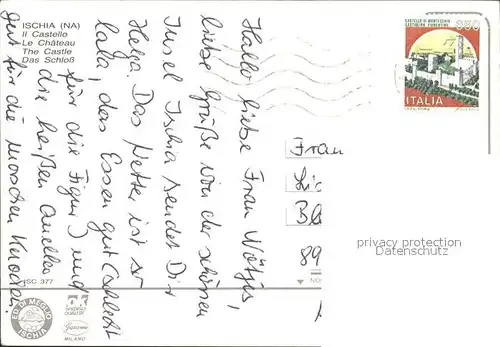 ISCHIA (NA)
Il Castello
Le Château
The Castle
Das Schloß
CASTELLO DI MONTECCHIO
CASTIGLION FIORENTINO
850
ITALIA
Hallo liebe Frau
liebe Grüße von der schönen
Insel Ischia sendet Dir
Helga. Das Wetter ist so
lala, das Essen gut (schlecht
für die Figur) und
die heißen Quellen
gut für die morschen Knochen.
Frau
89
privacy protection
Datenschutz
ISC 377
ED. DI MEGLIO
ISCHIA
MILANO